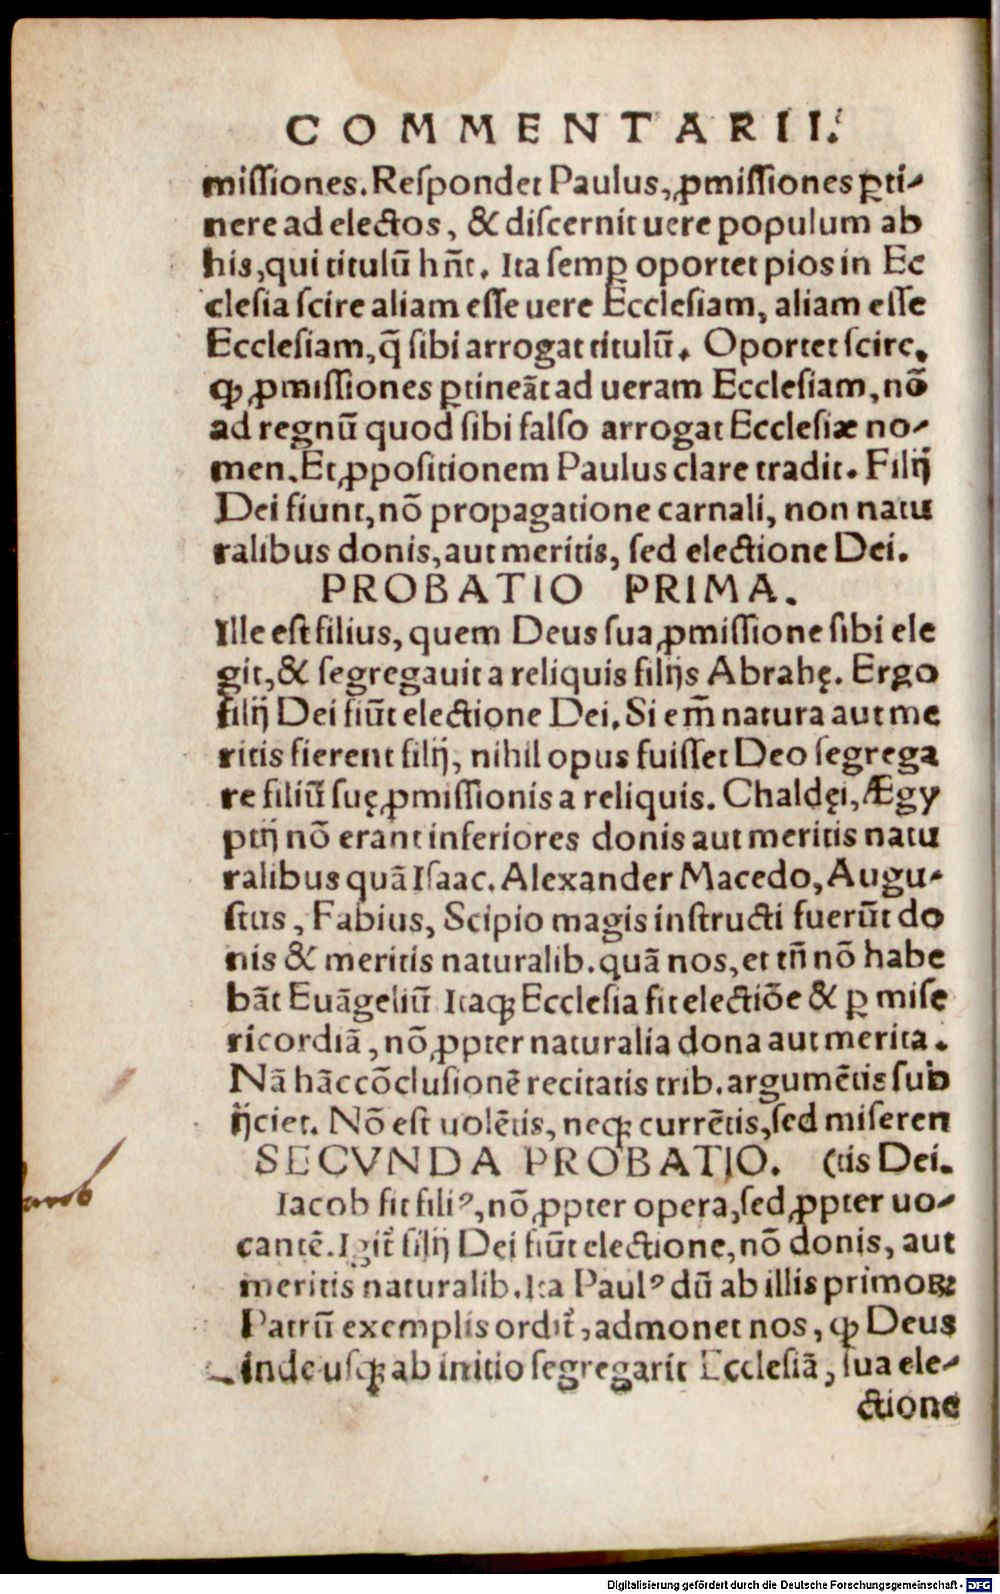 COMMENTARII.
miſſiones. Reſpondet Paulus, ꝓmiſſiones ꝑti-
nere ad electos, & diſcernit uere populum ab
his, qui titulū hñt. Ita ſemꝑ oportet pios in Ec
cleſia ſcire aliam eſſe uere Eccleſiam, aliam eſſe
Eccleſiam, q̄ ſibi arrogat titulū. Oportet ſcire,
ꝙ ꝓmiſſiones ꝑtineāt ad ueram Eccleſiam, nō
ad regnū quod ſibi falſo arrogat Eccleſiæ no-
men. Et ꝓpoſitionem Paulus clare tradit. Filij
Dei fiunt, nō propagatione carnali, non natu
ralibus donis, aut meritis, ſed electione Dei.
PROBATIO PRIMA.
Ille eſt filius, quem Deus ſua ꝓmiſſione ſibi ele
git, & ſegregauit a reliquis filijs Abrahę. Ergo
filij Dei fiūt electione Dei. Si em̄ natura aut me
ritis fierent filij, nihil opus fuiſſet Deo ſegrega
re filiū ſuę ꝓmiſſionis a reliquis. Chaldęi, Ægy
ptij nō erant inferiores donis aut meritis natu
ralibus quā Iſaac. Alexander Macedo, Augu-
ſtus, Fabius, Scipio magis inſtructi fuerūt do
nis & meritis naturalib. quā nos, et tñ nō habe
bāt Euāgeliū Itaqꝫ Eccleſia fit electiōe & ꝑ miſe
ricordiā, nō ꝓpter naturalia dona aut merita.
Nā hāc cōcluſionē recitatis trib. argumētis ſub
ijciet. Nō eſt uolētis, neqꝫ currētis, ſed miſeren
SECVNDA PROBATIO. (tis Dei.
Iacob fit filiꝰ, nō ꝓpter opera, ſed ꝓpter uo-
cantē. Igit᷑ filij Dei fiūt electione, nō donis, aut
meritis naturalib. Ita Paulꝰ dū ab illis primoꝝ
Patrū exemplis ordit᷑, admonet nos, ꝙ Deus
inde uſqꝫ ab initio ſegregarit Eccleſiā, ſua ele-
ctione
Digitalisierung gefördert durch die Deutsche Forschungsgemeinschaft - DFG